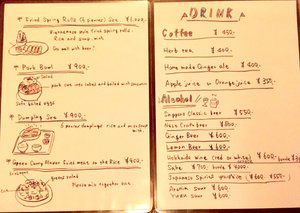 Fried Spring Rolls (4 pieces) Set ¥1,000-
Vietnamese style fried spring rolls.
Rice and soup with.
Go well with beer!
Pork Bowl ¥900-
pork cut into cubes and boiled with
Soto boiled egg
Dumpling Set ¥900-
5 pieces dumplings rice and miso soup
with.
Green Curry Flavor Fried meat on the Rice ¥900-
green salad
Please mix together one.
DRINK
Coffee ¥450-
Herb tea ¥400-
Home made Ginger ale ¥400-
Apple juice or Orange juice ¥350-
Alcohol
Sapporo Classic beer ¥550-
Beer
Ginger Beer ¥600-
Lemon Beer ¥600-
Hokkaido wine (red or white) ¥600-
Sake ¥700-
Japanese Spirit
Aronia sour ¥600-
Yuzu sour ¥600-